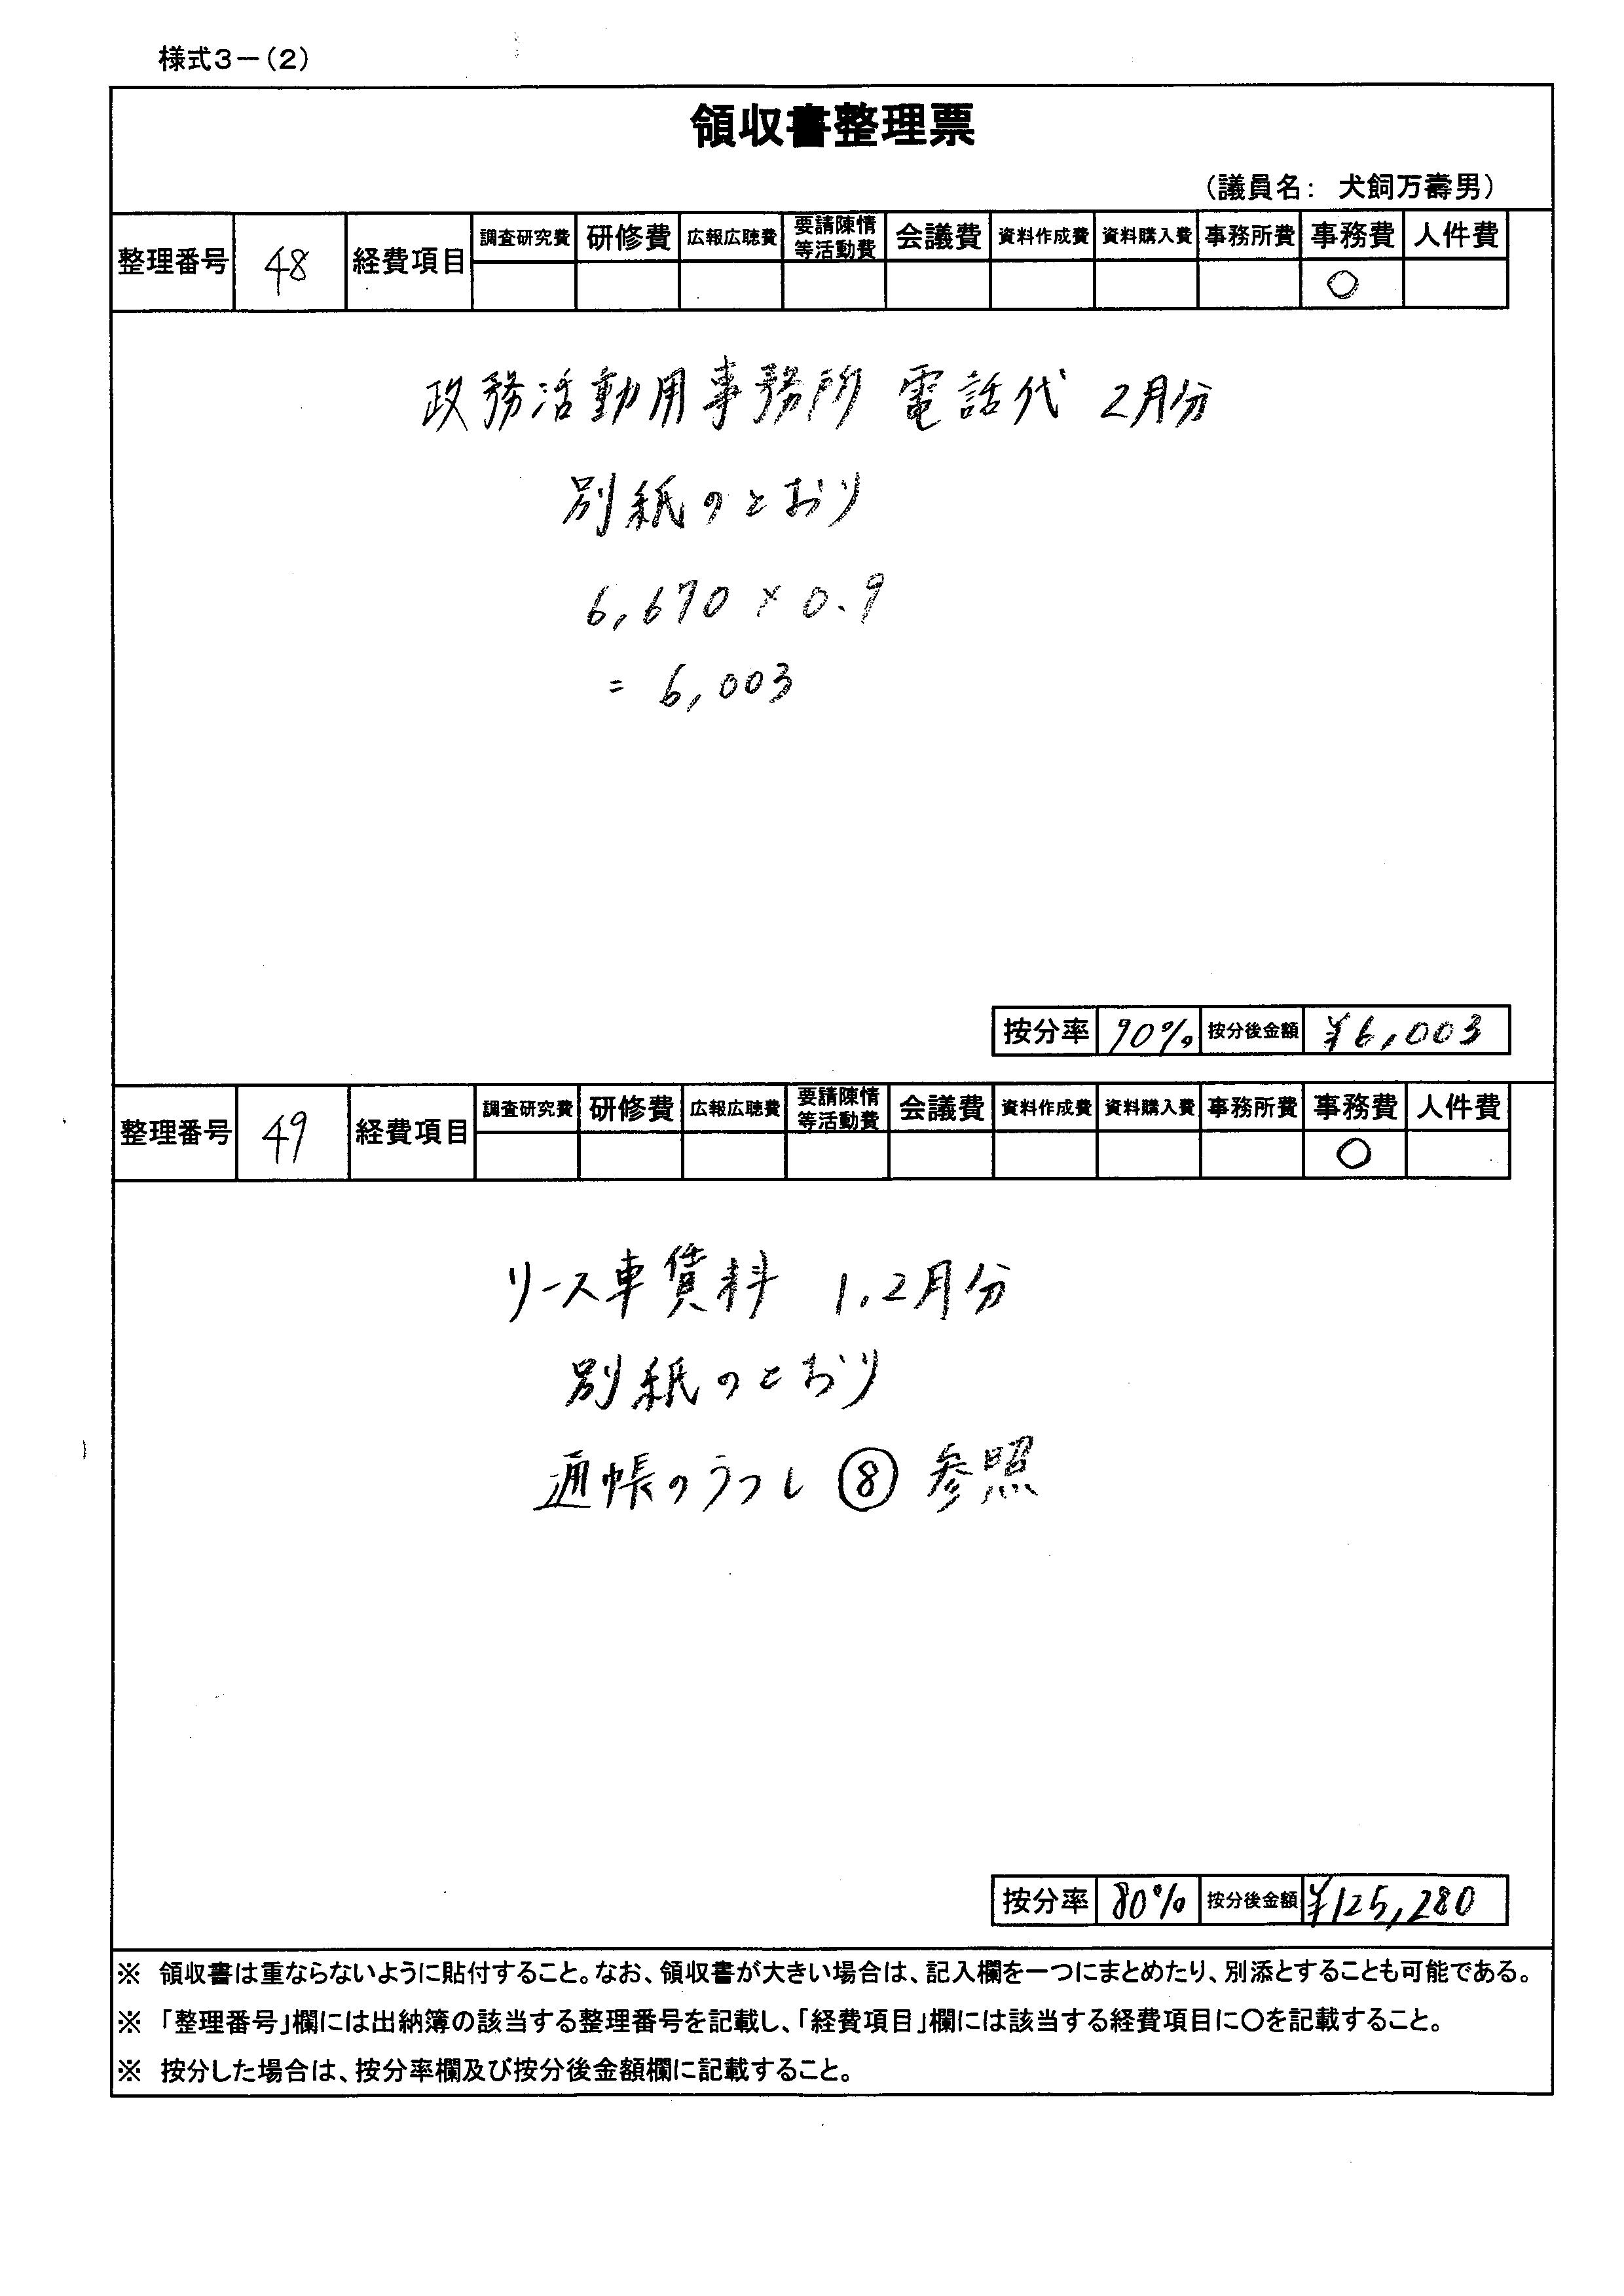 様式3－(2)
領収書整理票
(議員名： 犬飼万壽男)
整理番号 48 経費項目 調査研究費 研修費 広報広聴費 要請陳情等活動費 会議費 資料作成費 資料購入費 事務所費 事務費 人件費
○
政務活動用事務所 電話代 2月分
別紙のとおり
6,670 × 0.9
= 6,003
按分率 90% 按分後金額 ¥6,003
整理番号 49 経費項目 調査研究費 研修費 広報広聴費 要請陳情等活動費 会議費 資料作成費 資料購入費 事務所費 事務費 人件費
○
リース車賃料 1.2月分
別紙のとおり
通帳のうつし ⑧ 参照
按分率 80% 按分後金額 ¥125,280
※ 領収書は重ならないように貼付すること。なお、領収書が大きい場合は、記入欄を一つにまとめたり、別添とすることも可能である。
※ 「整理番号」欄には出納簿の該当する整理番号を記載し、「経費項目」欄には該当する経費項目に○を記載すること。
※ 按分した場合は、按分率欄及び按分後金額欄に記載すること。